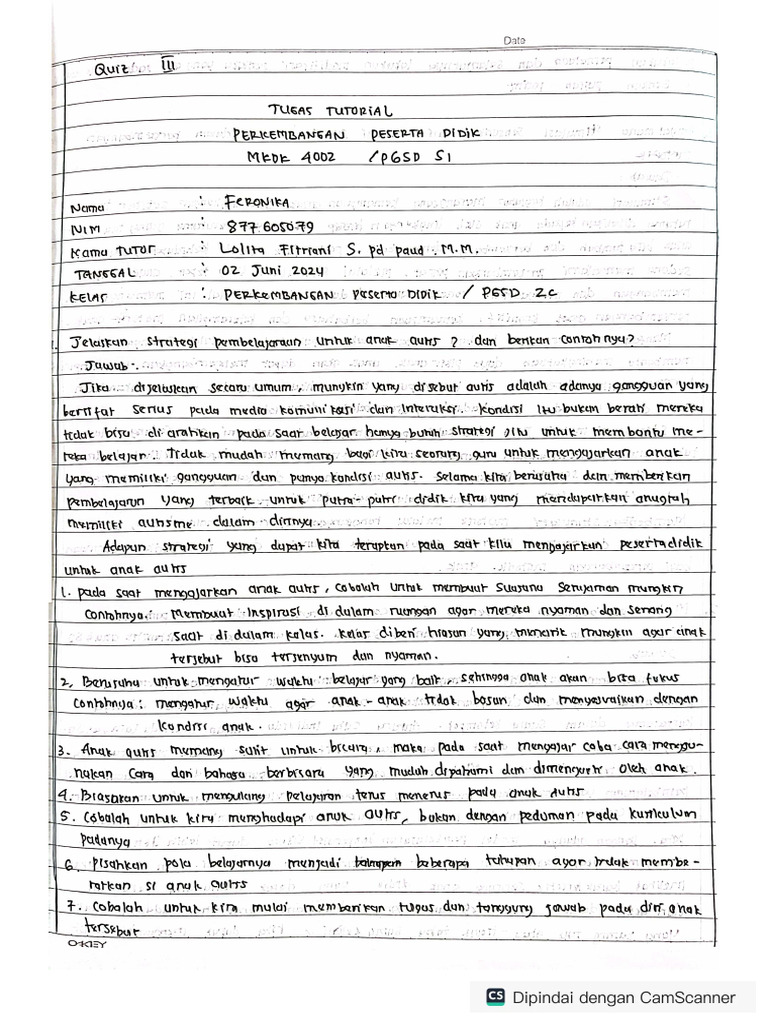 Date
Quiz III
TUGAS TUTORIAL
PERKEMBANGAN PESERTA DIDIK
MKDK 4002 /PGSD S1
Nama : FERONIKA
NIM : 877605079
Nama TUTOR : Lolita Fitriani S. pd paud. M.M.
TANGGAL : 02 Juni 2024
KELAS : PERKEMBANGAN Peserta DIDIK / PGSD 2C
1. Jelaskan strategi pembelajaraan untuk anak autis ? dan berikan contohnya?
Jawab :
Jika dijelaskan secara umum, mungkin yang disebut autis adalah adanya gangguan yang
bersifat serius pada media komunikasi dan Interaksi. Kondisi itu bukan berati mereka
tidak bisa di arahkan pada saat belajar hanya butuh strategi jitu untuk membantu me-
reka belajar. Tidak mudah memang bagi kita seorang guru untuk mengajarkan anak
yang memiliki gangguan dan punya kondisi autis. Selama kita berusaha dan memberikan
pembelajaran yang terbaik untuk putra-putri didik kita yang mendapatkan anugrah
memiliki autisme dalam dirinya.
Adapun strategi yang dapat kita terapkan pada saat kita mengajarkan peserta didik
untuk anak autis
1. pada saat mengajarkan anak autis, cobalah untuk membuat suasana senyaman mungkin
Contohnya : Membuat Inspirasi di dalam ruangan agar mereka nyaman dan senang
saat di dalam kelas. kelas diberi hiasan yang menarik mungkin agar anak
tersebut bisa tersenyum dan nyaman.
2. Berusaha untuk mengatur waktu belajar yang baik, sehingga anak akan bisa fokus
Contohnya : mengatur waktu agar anak-anak tidak bosan dan menyesuaikan dengan
kondisi anak.
3. Anak autis memang sulit untuk bicara, maka pada saat mengajar coba cara menggu-
nakan cara dan bahasa berbicara yang mudah dipahami dan dimengerti oleh anak.
4. Biasakan untuk mengulang pelajaran terus menerus pada anak autis
5. Cobalah untuk kita menghadapi anak autis, bukan dengan pedoman pada kurikulum
padanya
6. Pisahkan pola belajarnya menjadi beberapa tahapan agar tidak membe-
ratkan si anak autis
7. Cobalah untuk kita mulai memberikan tugas dan tanggung jawab pada diri anak
tersebut
OKEY
CS Dipindai dengan CamScanner